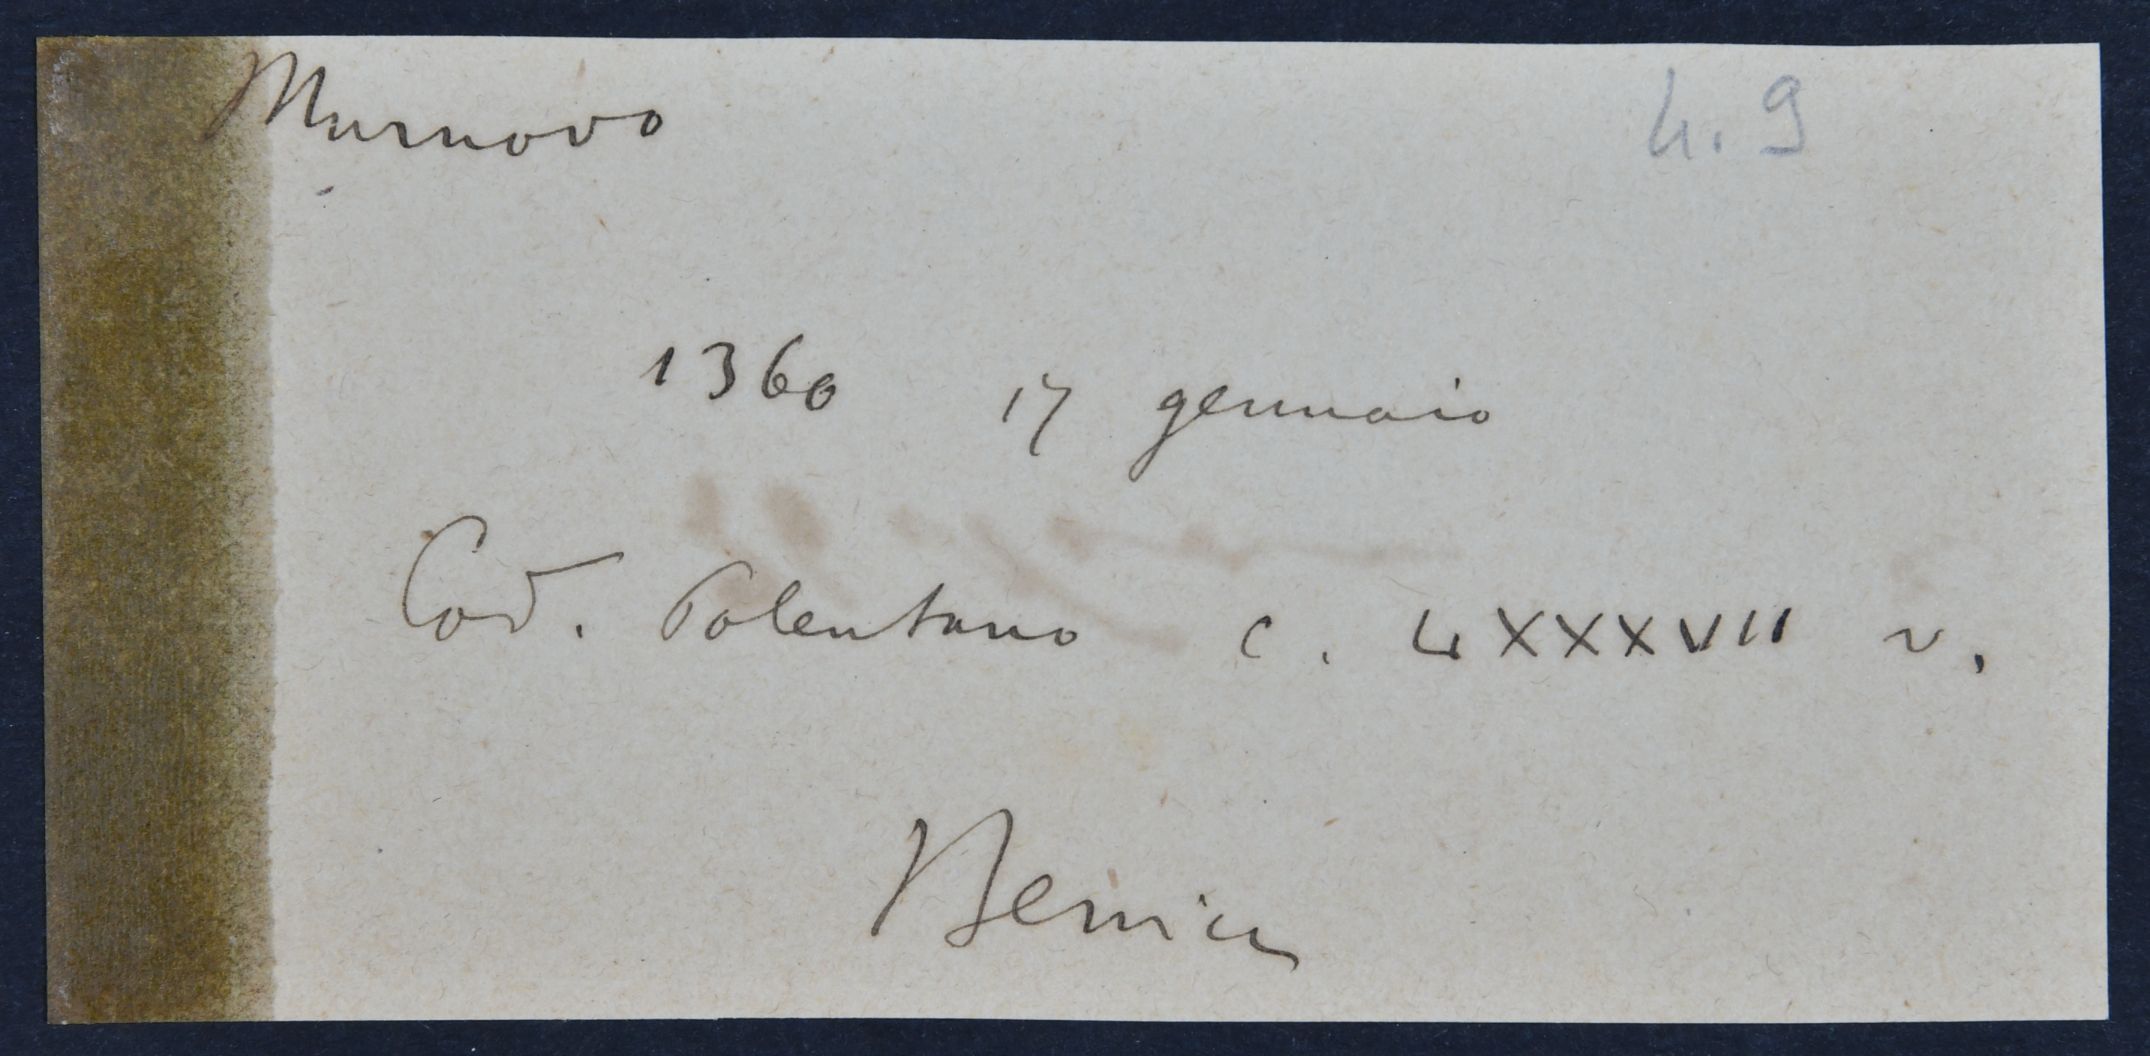 Murnovo
4. 9
1360 17 gennaio
Cod. Polentano c. LXXXVII v.